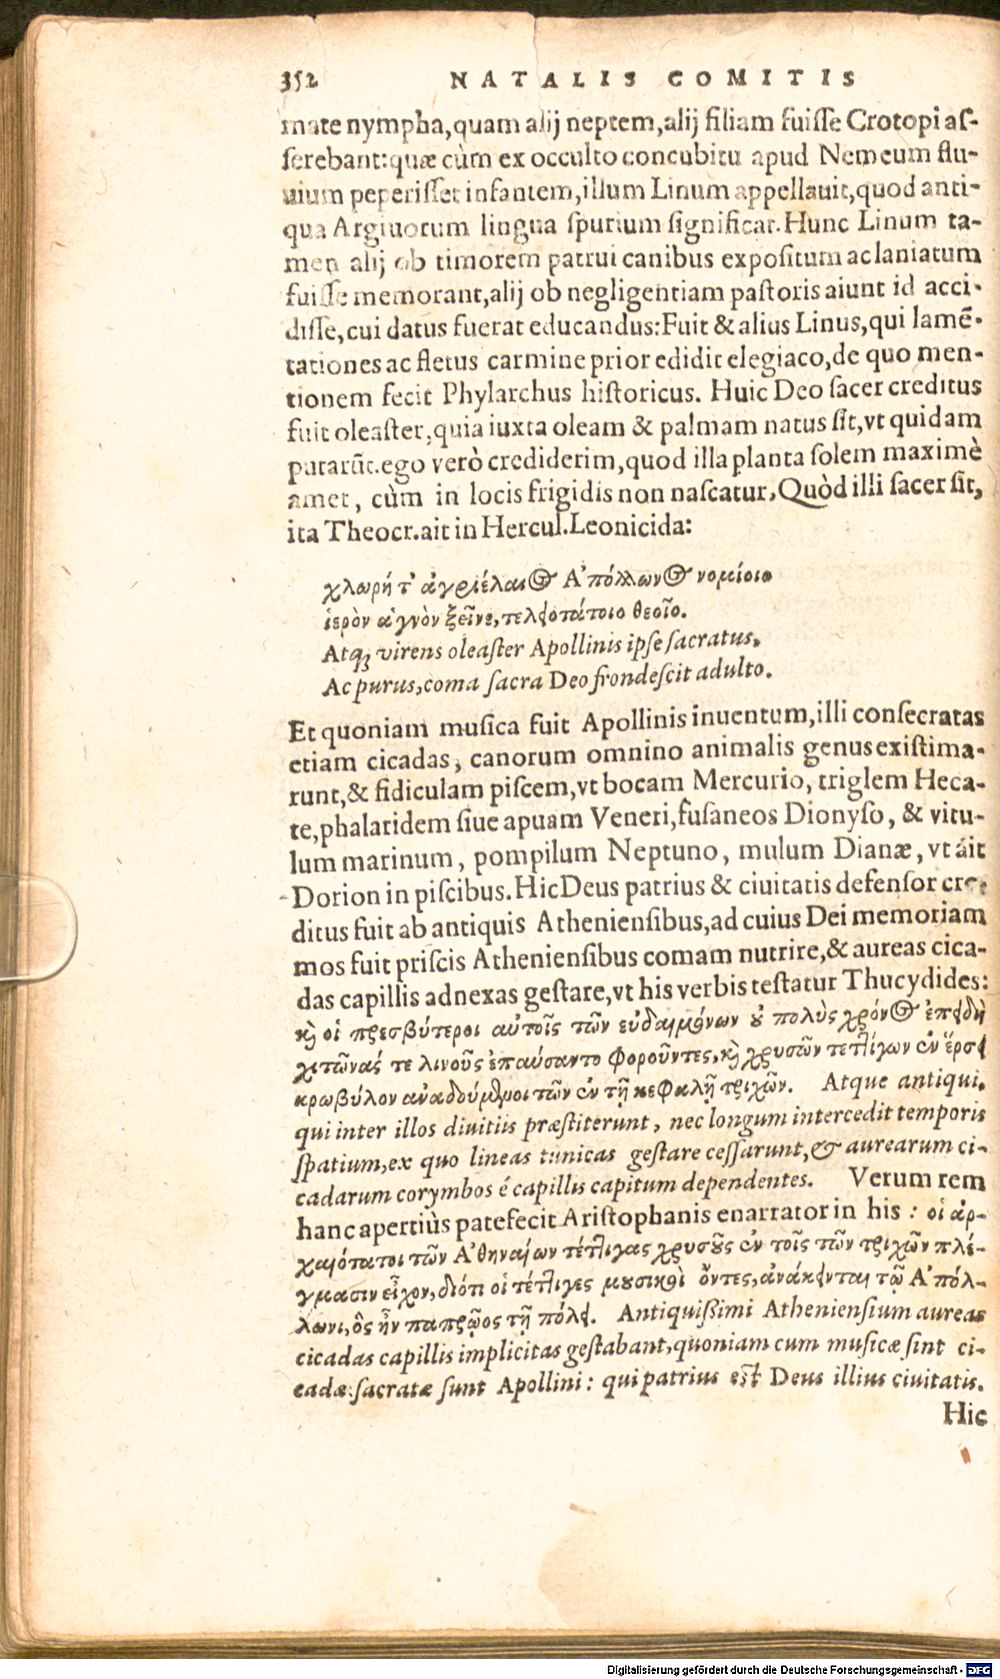 352 NATALIS COMITIS
mate nympha, quam alij neptem, alij filiam fuiſſe Crotopi aſ-
ſerebant: quæ cùm ex occulto concubitu apud Nemeum flu-
uium peperiſſet infantem, illum Linum appellauit, quod anti-
qua Argiuorum lingua ſpurium ſignificat. Hunc Linum ta-
men alij ob timorem patrui canibus expoſitum ac laniatum
fuiſſe memorant, alij ob negligentiam paſtoris aiunt id acci-
diſſe, cui datus fuerat educandus: Fuit & alius Linus, qui lamē-
tationes ac fletus carmine prior edidit elegiaco, de quo men-
tionem fecit Phylarchus hiſtoricus. Huic Deo ſacer creditus
fuit oleaſter, quia iuxta oleam & palmam natus ſit, vt quidam
putarūt. ego verò crediderim, quod illa planta ſolem maximè
amet, cùm in locis frigidis non naſcatur, Quòd illi ſacer ſit,
ita Theocr. ait in Hercul. Leonicida:
χλωρή τ' ἀγριέλαιος Ἀπόλλωνος νομίοιο
ἱερὸν ἁγνὸν ξεῖνε, τελειοτάτοιο θεοῖο.
Atq; virens oleaſter Apollinis ipſe ſacratus,
Ac purus, coma ſacra Deo frondeſcit adulto.
Et quoniam muſica fuit Apollinis inuentum, illi conſecratas
etiam cicadas, canorum omnino animalis genus exiſtima-
runt, & fidiculam piſcem, vt bocam Mercurio, triglem Heca-
te, phalaridem ſiue apuam Veneri, fuſaneos Dionyſo, & vitu-
lum marinum, pompilum Neptuno, mulum Dianæ, vt áit
Dorion in piſcibus. Hic Deus patrius & ciuitatis defenſor cre-
ditus fuit ab antiquis Athenienſibus, ad cuius Dei memoriam
mos fuit priſcis Athenienſibus comam nutrire, & aureas cica-
das capillis adnexas geſtare, vt his verbis teſtatur Thucydides:
καὶ οἱ πρεσβύτεροι αὐτοῖς τῶν εὐδαιμόνων οὐ πολὺς χρόνος ἐπειδὴ
χιτῶνάς τε λινοῦς ἐπαύσαντο φοροῦντες, καὶ χρυσῶν τεττίγων ἐν ἕρσει
κρωβύλον ἀναδούμενοι τῶν ἐν τῇ κεφαλῇ τριχῶν. Atque antiqui,
qui inter illos diuitiis præſtiterunt, nec longum intercedit temporis
ſpatium, ex quo lineas tunicas geſtare ceſſarunt, & aurearum ci-
cadarum corymbos é capillis capitum dependentes. Verum rem
hanc apertiùs patefecit Ariſtophanis enarrator in his: οἱ ἀρ-
χαιότατοι τῶν Ἀθηναίων τέττιγας χρυσοῦς ἐν τοῖς τῶν τριχῶν πλέ-
γμασιν εἶχον, διότι οἱ τέττιγες μουσικοὶ ὄντες, ἀνάκεινται τῷ Ἀπόλ-
λωνι, ὃς ἦν πατρῷος τῇ πόλει. Antiquißimi Athenienſium aureas
cicadas capillis implicitas geſtabant, quoniam cum muſicæ ſint ci-
cadæ: ſacratæ ſunt Apollini: qui patrius eſt Deus illius ciuitatis.
Hic
Digitalisierung gefördert durch die Deutsche Forschungsgemeinschaft - DFG